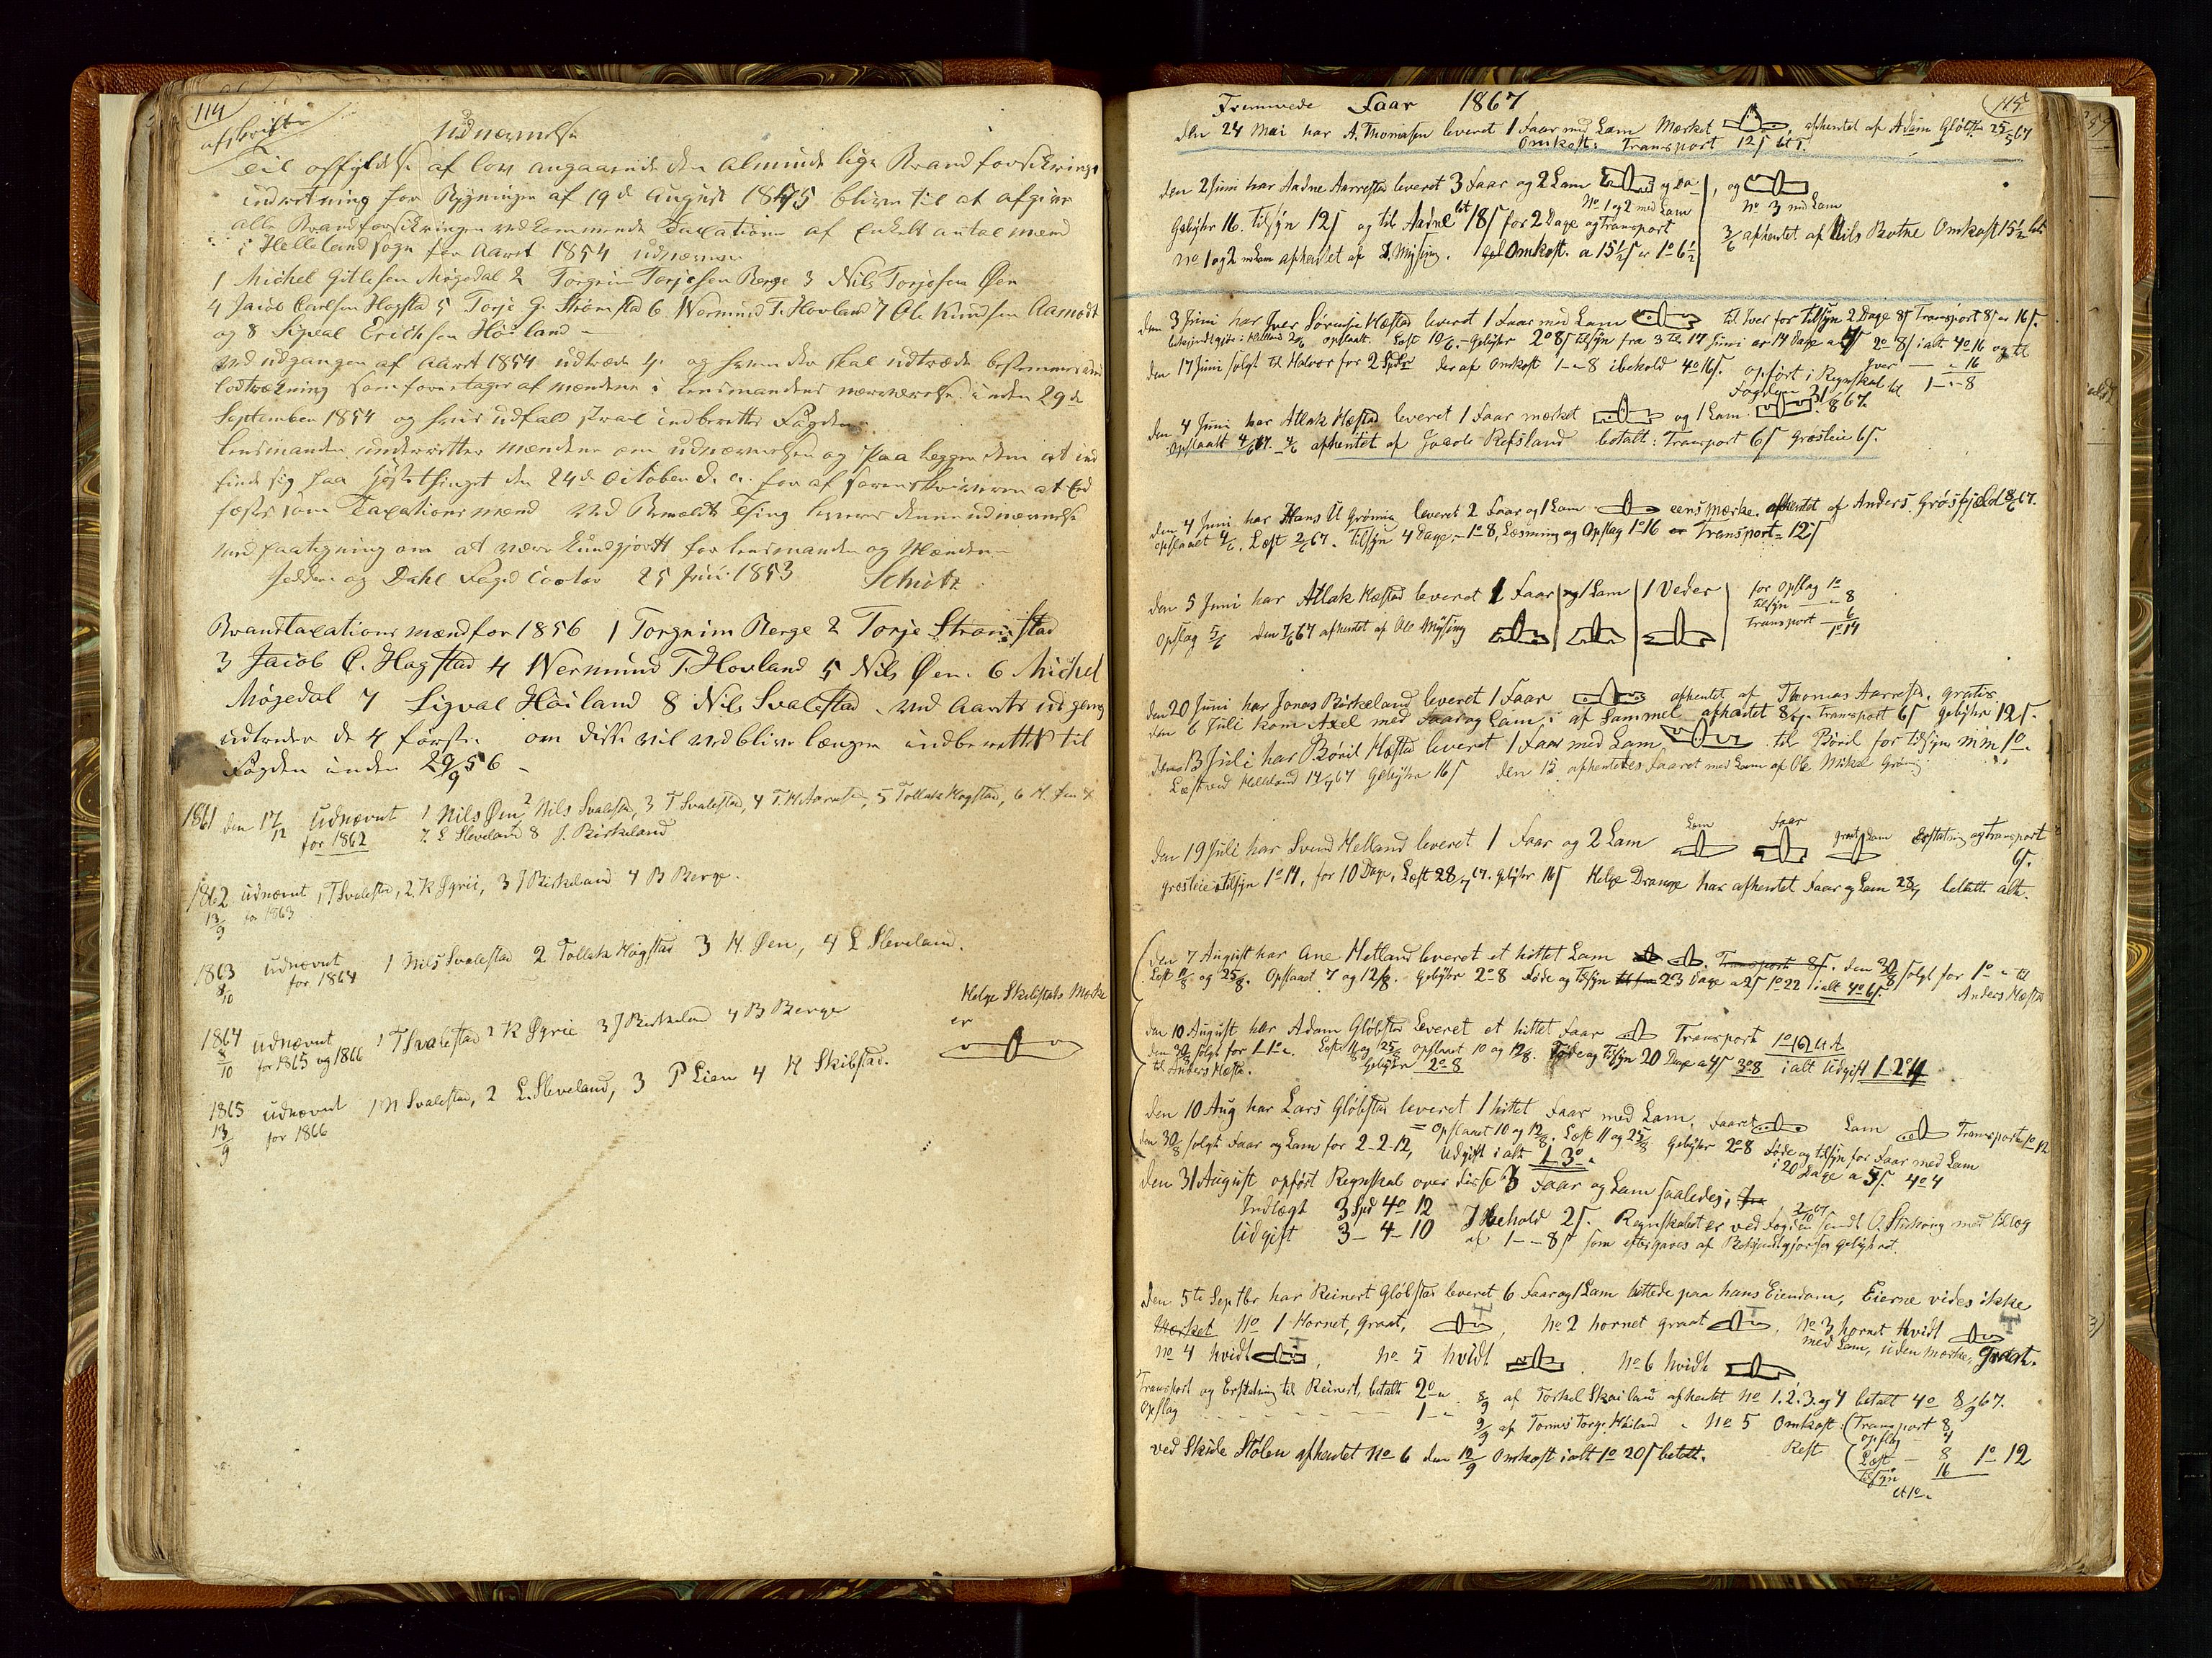 114
afskrifter
Udnævnelse
Til opfyldelse af lov angaaende den almindelige Brandforsikrings
indretning for Bygninger af 19de August 1845 bliver til at afgive
alle Brandforsikringen vedkommende Taxationer af Enkelt antal mænd
i Hellelandsogn for Aaret 1854 udnævnes
1 Michel Gitlesen Møgedal 2 Torgrim Torjesen Berge 3 Nils Torjesen Øen
4 Jacob Carlsen Hogstad 5 Torje G. Strømstad 6 Wermund T. Hovland 7 Ole Knudsen Aamodt
og 8 Sigval Erichsen Høiland
ved udgangen af Aaret 1854 udtræde 4 og hvem der skal udtræde bestemmes ved
lodtrækning som foretages af mændene i Lensmandens nærværelse inden 29de
September 1854 og hvis udfald strax indberettes Fogden
Lensmanden underretter mændene om udnævnelsen og paalegger dem at ind
finde sig paa Høstthinget den 24de October d. a. for af sorenskriveren at Eed
fæstes som Taxationsmænd ved Bemeldte Thing leveres denne udnævnelse
med paategning om at være kundgjordt for lensmanden og Mændene
Jedderen og Dahl Fogd Contor 25 Juni 1853 Schiøtz
Brandtaxationsmænd for 1856 1 Torgrim Berge 2 Torje Strømstad
3 Jacob C. Hogstad 4 Wermund T. Hovland 5 Nils Øen. 6 Michel
Møgedal 7 Sigval Høiland 8 Nils Svalestad ved Aarets udgang
udtræder de 4 første om disse vil vedblive længer indberettes til
Fogden inden 29/9 56
1861 den 17/12 udnævnt 1 Nils Øen, 2 Nils Svalestad, 3 T Svalestad, 4 T. H Aarrestad, 5 Tollak Hogstad, 6 H. Øen
for 1862 7. L Sleveland 8 J. Birkeland
1862 udnævnt 1 T Svalestad, 2 K Øgrei, 3 J Birkeland 4 B Berge.
13/9 for 1863
1863 udnævnt 1 Nils Svalestad 2 Tollak Hogstad 3 H. Øen, 4 L Sleveland.
8/10 for 1864
Helge Skibstads Mærke
er
1864 udnævnt 1 T Svalestad 2 K Øgrei 3 J Birkeland 4 B Berge
8/10 for 1865 og 1866
1865 udnævnt 1 N Svalestad, 2 L. Sleveland, 3 P Lien 4 H Skibstad.
13/9 for 1866
115
Fremmede Faar 1867
den 24 Mai har A. Thomasen leveret 1 Faar med Lam Mærket afhentet af Adam Gløbstad 25/5 67
Omkost: Transport 12 s bt.
den 2 Juni har Aadne Aarrestad leveret 3 Faar og 2 Lam og , og
No 1 og 2 med Lam No 3 med Lam
Gebyhr 16. Tilsyn 12 s og til Aadne bt 18 s for 2 Dage og Transport 3/6 afhentet af Nils Botne Omkost 15½
No 1 og 2 m Lam afhentet af S. Mysing. Omkost. a 15½ s er 1 o 6½
den 3 Juni har Iver Sørensen Hæstad leveret 1 Faar med Lam til Iver for Tilsyn 2 Dage 8 s Transport 8 s er 16 s.
opslaat. Læst 10/6. Gebyhr 2 o 8 s tilsyn fra 3 til 17 Juni er 14 Dage a 4 s 2 o 8 s ialt 4 o 16 og til
den 17 Juni solgt til Halvor for 2 Spdr der af Omkost 1 - - 8 ibehold 4 o 16 s. opført i Regnskab til Iver - 16
Fogden 31/8 67. 1 - - 8
den 4 Juni har Atlak Hæstad leveret 1 Faar mærket og 1 Lam
Opslaatt 4/6 67. 4/6 afhentet af Jacob Refsland betalt: Transport 6 s Græsleie 6 s.
den 4 Juni har Hans U Grøning leveret 2 Faar og 1 Lam eens mærke. afhentet af Anders Grøsfjeld 8/6 67.
opslaaet 4/6. Læst 2/6 67. Tilsyn 4 Dage, - 1 o 8, Læsning og Opslag 1 o 16 er Transport = 12 s
den 5 Juni har Atlak Hæstad leveret 1 Faar og 1 Lam 1 Veder for Opslag 1 o
tilsyn - - 8
opslag 5/6 den 7/6 67 afhentet af Ole Mysing Transport 6
1 o 14
den 20 Juni har Jonas Birkeland leveret 1 Faar afhentet af Thomas Aarrestad. gratis
den 6 Juli kom Axel med Faar og Lam, af Sammel afhentet 8/7. Transport 6 s Gebyhr 12 s.
den 13 Juli har Børil Hæstad leveret 1 Faar med Lam til Børil for tilsyn m m 1 o.
Læst ved Helleland 14/7 67 Gebyhr 16 s den 15 afhentedes Faaret med Lam af Ole Mikal Grøning
den 19 Juli har Svend Helland leveret 1 Faar og 2 Lam Lam Faar graat Lam Erstatning og Transport
6 s.
græsleie tilsyn 1 o 14, for 10 Dage, Læst 28/7 67. Gebyhr 16 s Helge Drange har afhentet Faar og Lam 28/7 betalt alt.
den 7 August har Ane Hetland leveret et hittet Lam Transport 8 s. den 30/8 solgt for 1 o - til
Læst 11/8 og 25/8. Opslaaet 7 og 12/8. Gebyhr 2 o 8 Føde og tilsyn 23 Dage a 2 s 1 o 22 ialt 4 o 6 s. Anders Hæstad
den 10 August har Adam Gløbstad Leveret et hittet Faar Transport 1 o
den 30/8 solgt for 1 1 o -. Læst 11 og 25/8 opslaaet 10 og 12/8. Føde og Tilsyn 20 Dage a 4 s 3 o 8 ialt Udgift 1 2 o 4
til Anders Hæstad. Gebyhr 2 o 8
den 10 Aug har Lars Gløbstad leveret 1 hittet Faar med Lam. Faaret Lam Transport 1 o 12
= Opslaaet 10 og 12/8. Læst 11 og 25/8 Gebyhr 2 o 8 Føde og tilsyn for Faar med Lam
den 30/8 solgt Faar og Lam for 2 - 2 - 12, Udgift i alt 1 3 o - i 20 Dage a 5 s. 4 o 4
den 31 August opført Regnskab over disse 3 Faar og Lam saaledes,
Indlægt 3 Spd 4 o 12 I behold 2 s. Regnskabet er ved Fogden sendt O. Stishong med Tillæg
Udgift 3 - 4 - 10 af 1 - - 8 s som eftergaves af Bekjendtgjørelse gebyhret.
den 5te Septbr har Reinert Gløbstad leveret 6 Faar og 1 Lam hittede paa hans Eiendom, Eierne vides ikke
Mærket No 1 Hornet, graat, No 2 hornet graat , No 3 hornet Hvidt
No 4 hvidt , No 5 hvidt No 6 hvidt med Lam, uden mærke, graat.
Transport og Erstatning til Reinert, betalt 2 o - 8/9 af Torkel Skailand afhentet No 1. 2. 3. og 4 betalt 4 o 8/9 67.
Opslag 1 - - 9/9 af Tonnes Torg. Høiland - No 5 Omkost. Transport 8
opslag - 4
ved Skide Stølen afhentet No 6 den 12/9 Omkost ialt 1 o 20 s betalt. Rest Læst - 8 1 o 12
tilsyn 16